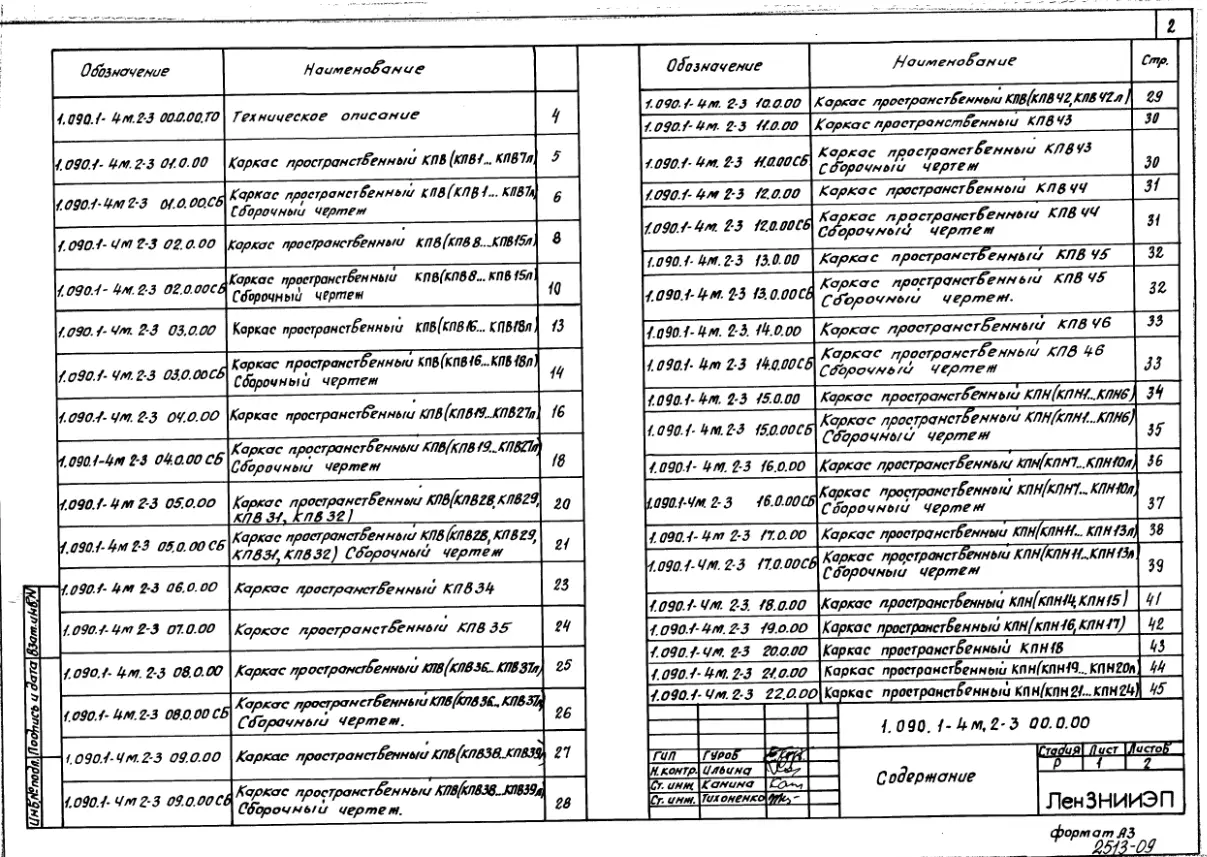 2
Обозначение Наименование
1.090.1-4м.2-3 00.0.00.ТО Техническое описание 4
1.090.1-4м.2-3 01.0.00 Каркас пространственный КПВ(КПВ1...КПВ7л) 5
1.090.1-4м 2-3 01.0.00.СБ Каркас пространственный КПВ(КПВ1...КПВ7л) 6
Сборочный чертеж
1.090.1-4м 2-3 02.0.00 Каркас пространственный КПВ(КПВ8...КПВ15л) 8
1.090.1-4м.2-3 02.0.00СБ Каркас пространственный КПВ(КПВ8...КПВ15л) 10
Сборочный чертеж
1.090.1-4м.2-3 03.0.00 Каркас пространственный КПВ(КПВ16...КПВ18л) 13
1.090.1-4м.2-3 03.0.00СБ Каркас пространственный КПВ(КПВ16...КПВ18л) 14
Сборочный чертеж
1.090.1-4м.2-3 04.0.00 Каркас пространственный КПВ(КПВ19...КПВ27л) 16
1.090.1-4м 2-3 04.0.00 СБ Каркас пространственный КПВ(КПВ19...КПВ27л) 18
Сборочный чертеж
1.090.1-4м 2-3 05.0.00 Каркас пространственный КПВ(КПВ28,КПВ29, 20
КПВ31, КПВ32)
1.090.1-4м 2-3 05.0.00 СБ Каркас пространственный КПВ(КПВ28,КПВ29, 21
КПВ31,КПВ32) Сборочный чертеж
1.090.1-4м 2-3 06.0.00 Каркас пространственный КПВ34 23
1.090.1-4м 2-3 07.0.00 Каркас пространственный КПВ35 24
1.090.1-4м.2-3 08.0.00 Каркас пространственный КПВ(КПВ36...КПВ37л) 25
1.090.1-4м.2-3 08.0.00 СБ Каркас пространственный КПВ(КПВ36...КПВ37л) 26
Сборочный чертеж.
1.090.1-4м.2-3 09.0.00 Каркас пространственный КПВ(КПВ38...КПВ39л) 27
1.090.1-4м 2-3 09.0.00СБ Каркас пространственный КПВ(КПВ38...КПВ39л) 28
Сборочный чертеж.
Обозначение Наименование Стр.
1.090.1-4м.2-3 10.0.00 Каркас пространственный КПВ(КПВ42,КПВ42л) 29
1.090.1-4м.2-3 11.0.00 Каркас пространственный КПВ43 30
1.090.1-4м.2-3 11.0.00СБ Каркас пространственный КПВ43 30
Сборочный чертеж
1.090.1-4м 2-3 12.0.00 Каркас пространственный КПВ44 31
1.090.1-4м.2-3 12.0.00СБ Каркас пространственный КПВ44 31
Сборочный чертеж
1.090.1-4м.2-3 13.0.00 Каркас пространственный КПВ45 32
1.090.1-4м.2-3 13.0.00СБ Каркас пространственный КПВ45 32
Сборочный чертеж.
1.090.1-4м.2-3. 14.0.00 Каркас пространственный КПВ46 33
1.090.1-4м 2-3 14.0.00СБ Каркас пространственный КПВ 46 33
Сборочный чертеж
1.090.1-4м.2-3 15.0.00 Каркас пространственный КПН(КПН1...КПН6) 34
1.090.1-4м.2-3 15.0.00СБ Каркас пространственный КПН(КПН1...КПН6) 35
Сборочный чертеж
1.090.1-4м.2-3 16.0.00 Каркас пространственный КПН(КПН7...КПН10л) 36
1.090.1-4м.2-3 16.0.00СБ Каркас пространственный КПН(КПН7...КПН10л) 37
Сборочный чертеж
1.090.1-4м 2-3 17.0.00 Каркас пространственный КПН(КПН11...КПН13л) 38
1.090.1-4м.2-3 17.0.00СБ Каркас пространственный КПН(КПН11...КПН13л) 39
Сборочный чертеж
1.090.1-4м.2-3. 18.0.00 Каркас пространственный КПН(КПН14,КПН15) 41
1.090.1-4м.2-3 19.0.00 Каркас пространственный КПН(КПН16,КПН17) 42
1.090.1-4м.2-3 20.0.00 Каркас пространственный КПН18 43
1.090.1-4м.2-3 21.0.00 Каркас пространственный КПН(КПН19...КПН20л) 44
1.090.1-4м.2-3 22.0.00 Каркас пространственный КПН(КПН21...КПН24) 45
1.090.1-4м.2-3 00.0.00
Гип Гуров
Н.контр. Ильина
Ст. инж. Канина
Ст. инж. Тихоненко
Содержание
Стадия Лист Листов
Р 1 2
ЛенЗНИИЭП
формат А3
2513-09
Инв.№подл. Подпись и дата Взам.инв.N